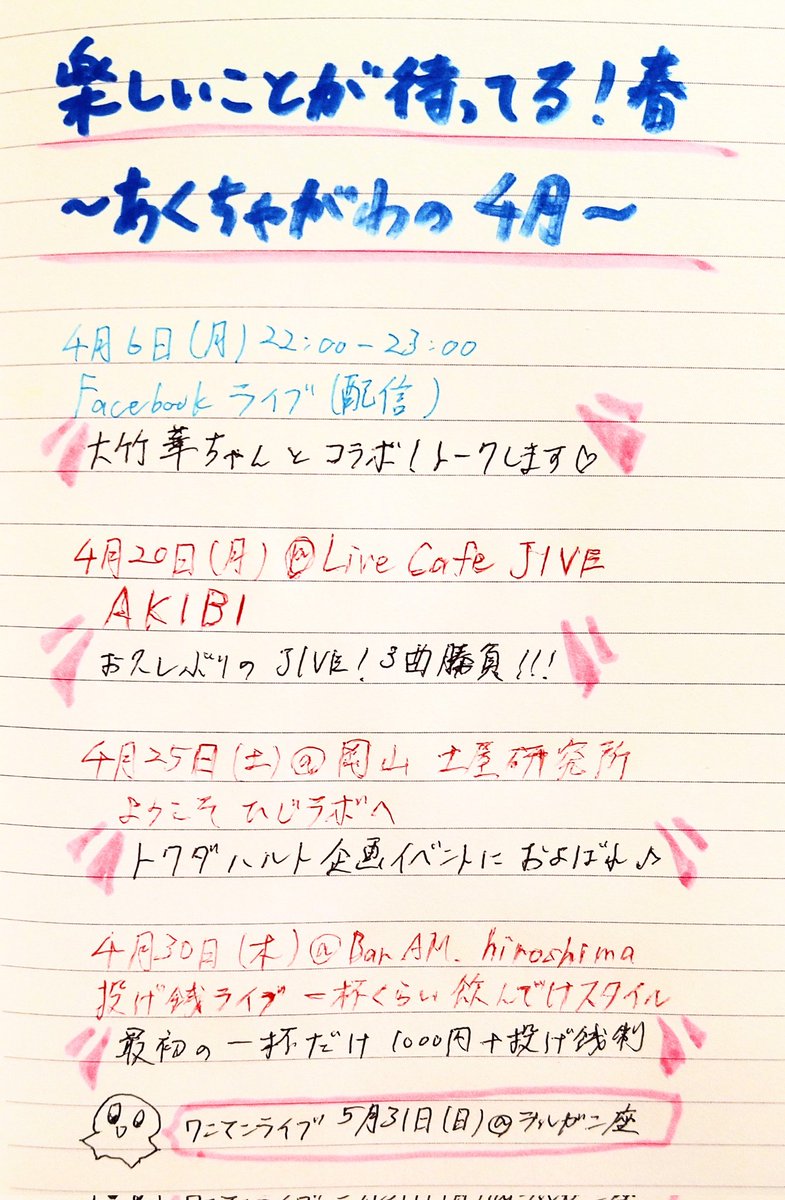 楽しいことが待ってる!春
〜あくちゃがわの4月〜
4月6日(月)22:00-23:00
Facebookライブ(配信)
大竹華ちゃんとコラボ!トークします♡
4月20日(月)@Live Cafe JIVE
AKIBI
お久しぶりのJIVE!3曲勝負!!!
4月25日(土)@岡山 土屋研究所
ようこそひじラボへ
トクダハルト企画イベントにおよばれ♪
4月30日(木)@Bar AM. hiroshima
投げ銭ライブ 一杯くらい飲んでけスタイル
最初の一杯だけ1000円+投げ銭制
ワニマンライブ 5月31日(日)@ヲルガン座